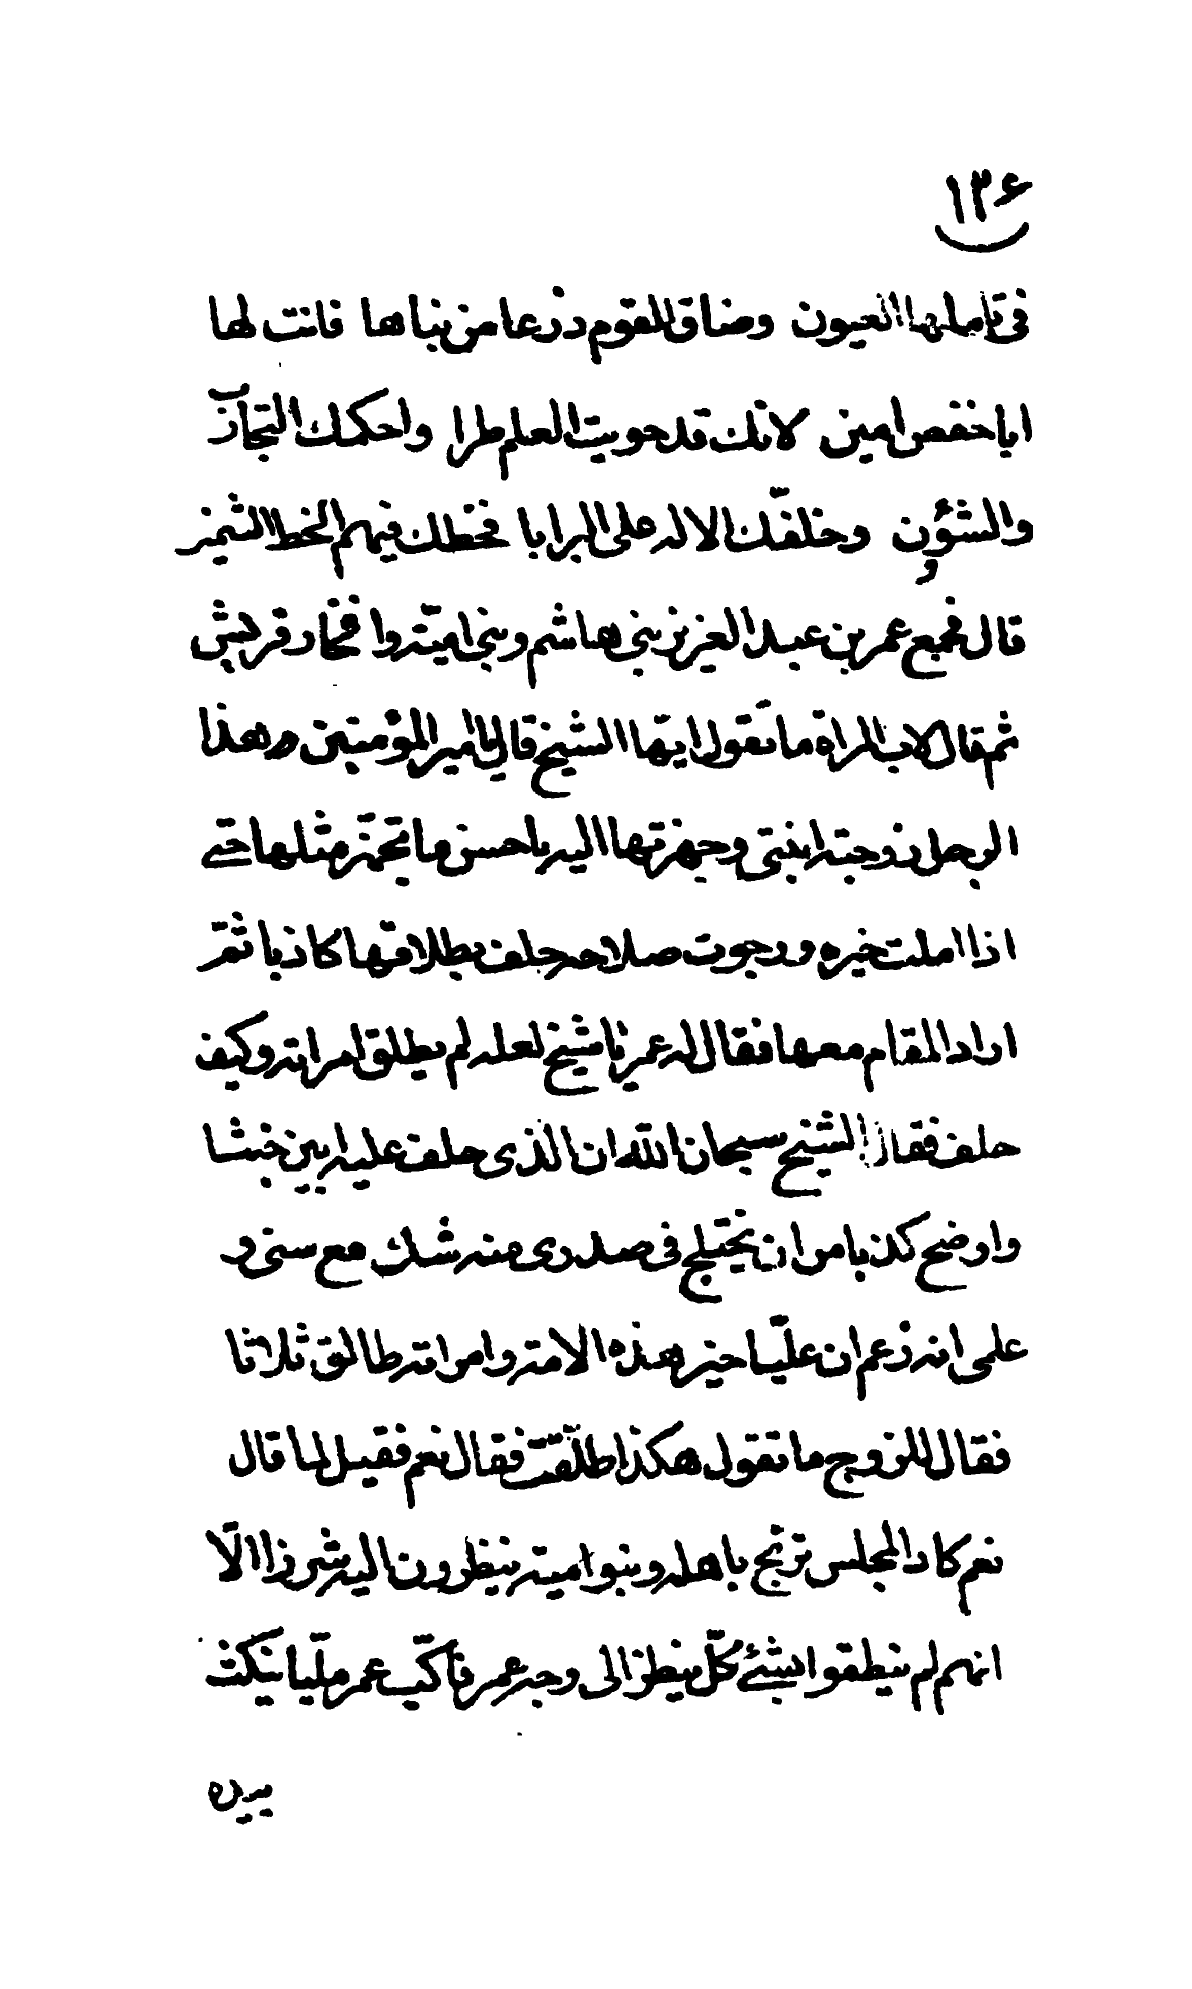 ۱۳۶
فى تاملها العيون وضاق القوم ذرعا من بناها فانت لها
ابا حفص امين لانك قد حويت العلم طرا واحكمك التجارب
والشؤن وخلفّك الاله على البرايا فحظك فيهم الحظ الثمين
قال فجمع عمر بن عبد العزيز بنى هاشم وبنى اميّة وا فخاذ قريش
ثم قال لاب المراة ما تقول ايّها الشيخ قال يا امير المؤمنين هذا
الرجل زوجته ابنتى وجهزتها اليه باحسن ما تجهّز مثلها حتى
اذا املت خيره ورجوت صلاحه حلف بطلاقها كاذبا ثمّ
اراد المقام معها فقال له عمر يا شيخ لعله لم يطلق امراته وكيف
حلف فقال الشيخ سبحان اللّه ان الذى حلف عليه ابين خبثا
واوضح كذبا من ان يختلج فى صدرى منه شك مع سنى و
علمى انه زعم ان عليّا خير هذه الامة وامراته طالق ثلاثا
فقال للزوج ما تقول هكذا طلّقت فقال نعم فقيل لما قال
نعم كاد المجلس يرتج باهله وبنوا امية ينظرون اليه شزرا الّا
انهم لم ينطقوا بشئ كلّ ينظر الى وجه عمر فاكبّ عمر مليّا ينكت
بيده